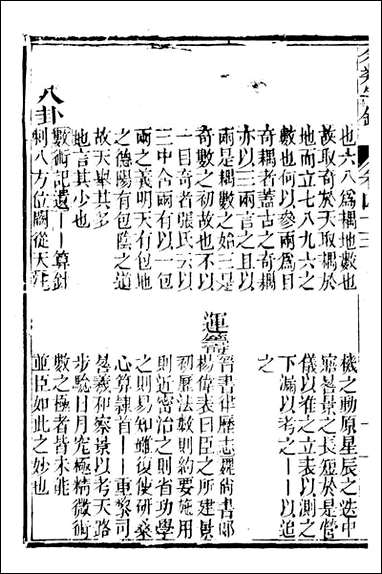 分類字錦 卷四十三
也六八爲耦地數也
故取奇於天取耦於
地而立七八九六之
數也何以參兩爲目
奇耦者蓋古之奇耦
亦以三兩言之且以
兩是耦數之始三是
奇數之初故也不以
一目奇者張氏云以
三中含兩有以一包
兩之義明天有包地
之德陽有包陰之道
故天舉其多
地言其少也
八卦
數術記遺——算針
刺八方位闕從天
機之動原星辰之迭中
寤晷景之長短於是營
儀以准之立表以測之
下漏以考之——以追
之
運籌
晉書律歷志魏尚書郎
楊偉表曰臣之所建景
初歷法數則約要施用
則近密治之則省功學
之則易知雖復使研桑
心算隷首——重黎司
晷羲和察景以考天路
步驗日月究極精微術
數之極者皆未能
並臣如此之妙也